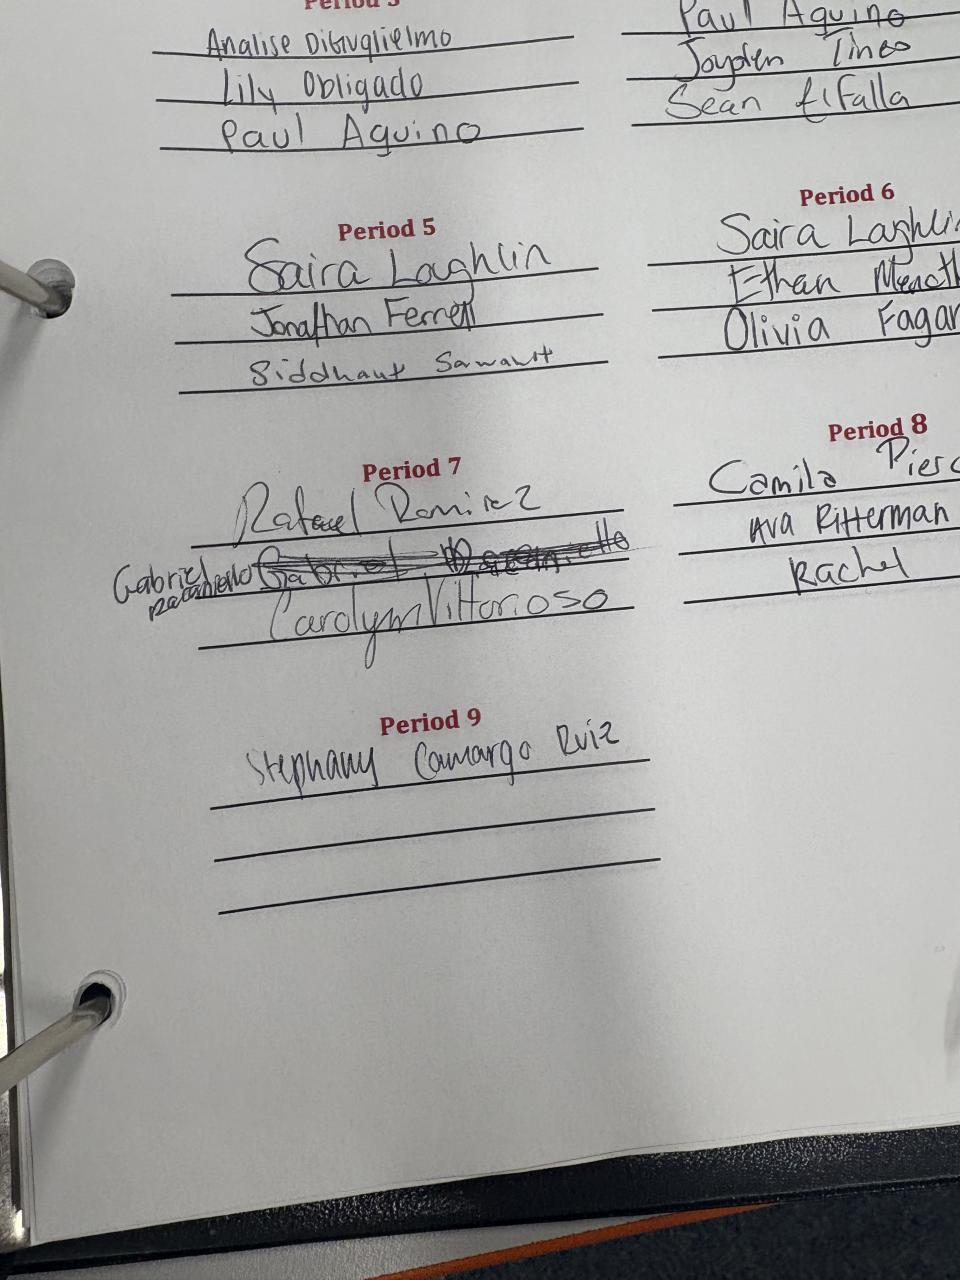 Period 3
Analise DiGuglielmo
Lily Obligado
Paul Aquino
Paul Aquino
Jayden Tineo
Sean Elfalla
Period 5
Saira Laghlin
Jonathan Ferrell
Siddhant Sawant
Period 6
Saira Laghlin
Ethan
Olivia Fagan
Period 7
Rafael Ramirez
Gabriel
Gabriel
Carolyn Vittorioso
Period 8
Camila
Ava Ritterman
Rachel
Period 9
Stephany Camargo Ruiz